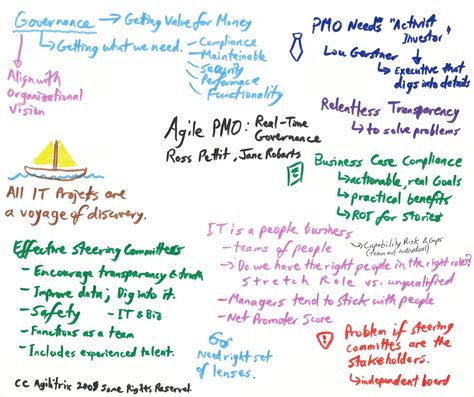 Governance → Getting Value for Money
↳ Getting what we need.
- Compliance
- Maintainable
- Security
- Performace
- Functionality
Align with
Organizational
Vision
PMO Needs "Activist
Investor"
Lou Gerstner
↳ Executive that
digs into details
Agile PMO: Real-Time
Governance
Ross Pettit, Jane Robarts
Relentless Transparency
↳ to solve problems
Business Case Compliance
↳ actionable, real Goals
↳ practical benefits
↳ ROI for Stories
All IT Projects are
a voyage of discovery.
IT is a people business
- teams of people
→ Capability Risk & Gaps
(team not individual)
- Do we have the right people in the right roles?
Stretch Role vs. unqualified
- Managers tend to stick with people
- Net Promoter Score
Effective Steering Committees
- Encourage transparency & truth
- Improve data; Dig into it.
- Safety - IT & Biz
- Functions as a team
- Includes experienced talent.
Need right set
of lenses.
Problem if steering
committees are the
stakeholders.
↳ independent board
CC Agilitrix 2009 Some Rights Reserved.